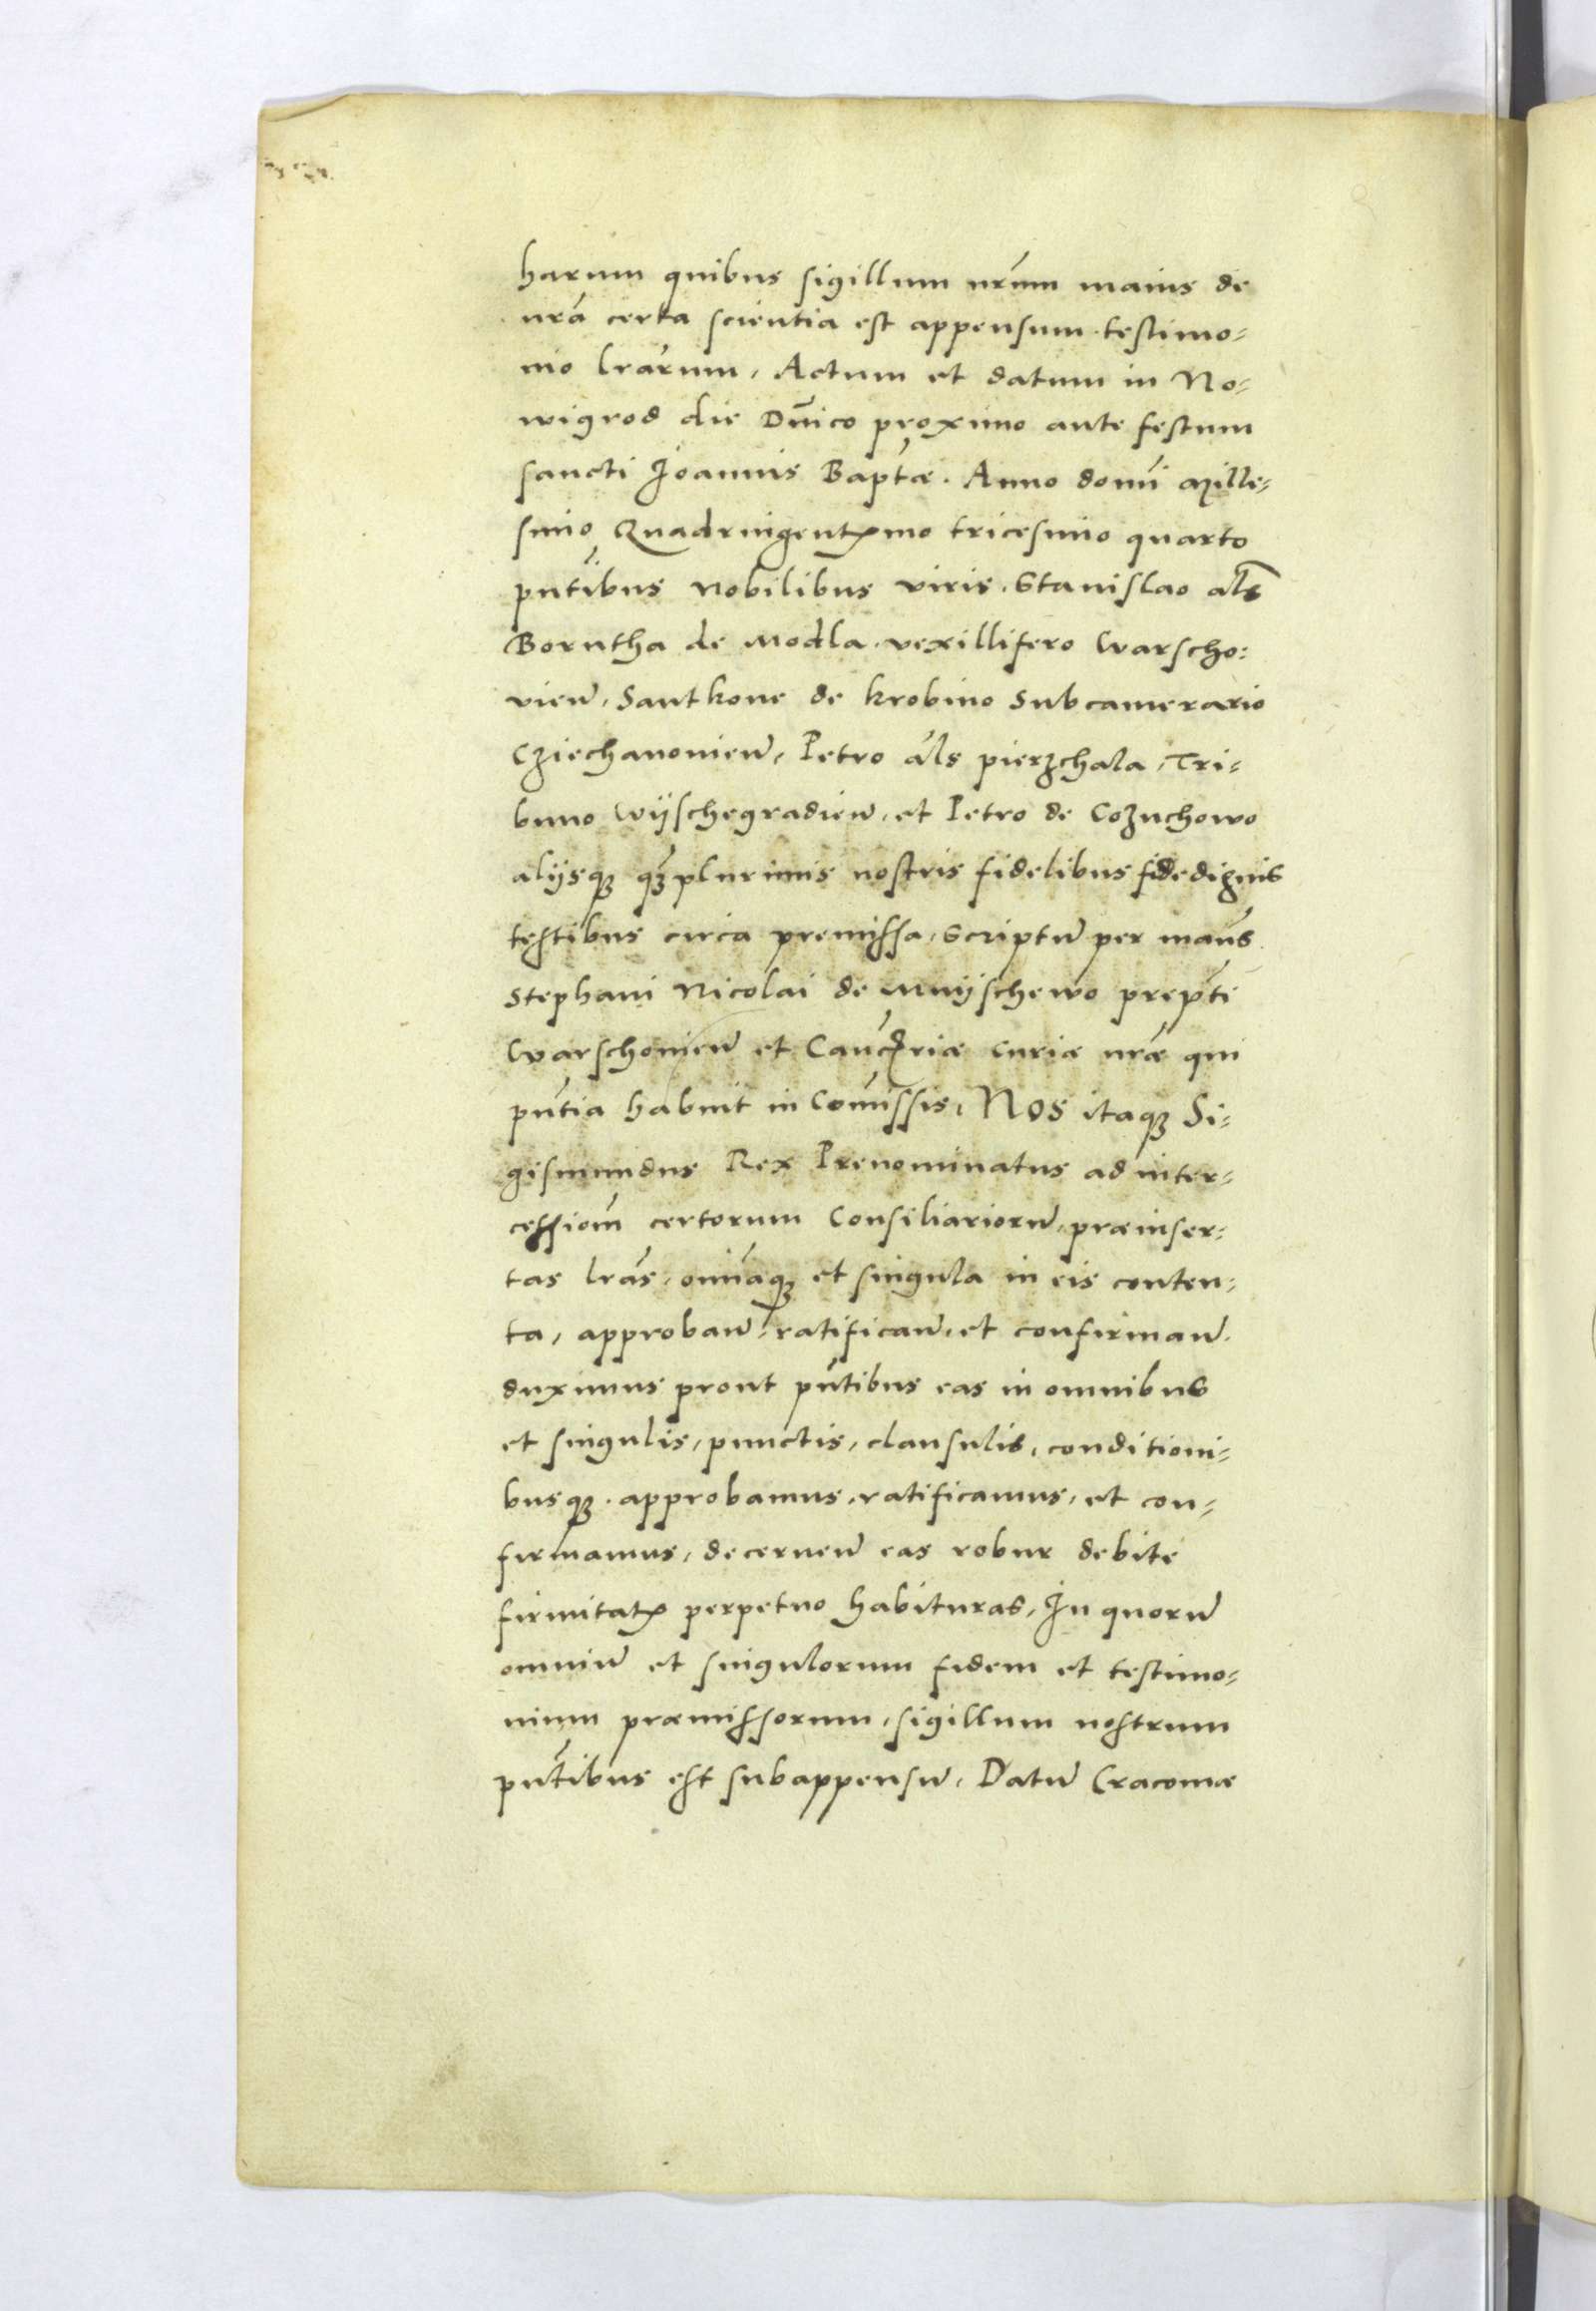 harum quibus sigillum nr̃um maius de
nrã certa scientia est appensum testimo-
nio lrãrum, Actum et datum in No-
wigrod die Dñico proximo ante festum
sancti Joannis Baptæ. Anno domi͂ Mille-
simo Quadringentesimo tricesimo quarto
pñtibus Nobilibus viris. Stanislao als͂
Borutha de Modla. vexillifero Warscho:
vieñ, Santkone de krobino Subcamerario
Cziechanovieñ, Petro al͂s pierzchala, Tri-
buno Wÿschegradieñ, et Petro de Cozuchowo
alÿsqꝫ qꝫplurimis nostris fidelibus fidedignis
testibus circa premissa, Scriptũ per manũs
Stephani Nicolai de Mnÿschewo prep͂ti
Warschovieñ et Canc͂riæ curiæ nr̃æ qui
pñtia habuit in Com͂issis, Nos itaqꝫ Si-
gismundus Rex Prenominatus ad inter-
cessiom͂ certorum Consiliariorũ, præinser-
tas lrãs, omñaqꝫ et singula in eis conten-
ta, approbañ, ratificañ, et confirmañ.
duximus prout pñtibus eas in omnibus
et singulis, punctis, clausulis, conditioni-
busqꝫ. approbamus, ratificamus, et con-
firmamus, decerneñ eas robur debite
firmitatis perpetuo habituras, In quorũ
omniũ et singulorum fidem et testimo-
nium præmissorum, sigillum nostrum
pñtibus est subappensũ, Datũ Cracoviæ